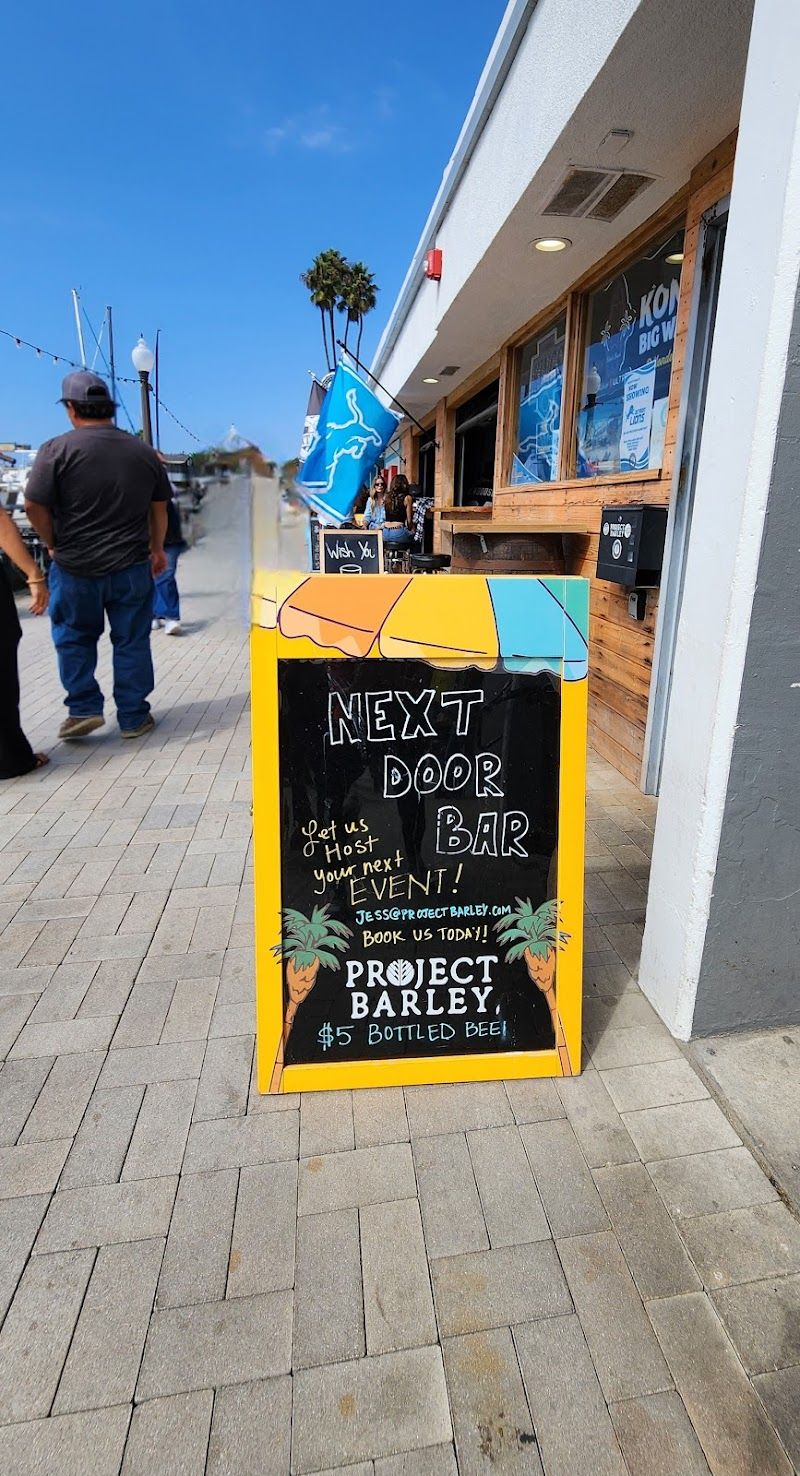 Wish You
NEXT
DOOR
BAR
Let us
Host
your next
EVENT!
JESS@PROJECTBARLEY.COM
BOOK US TODAY!
PROJECT
BARLEY
$5 BOTTLED BEE
KON
BIG W
NOW
SHOWING
LIONS
PROJECT
BARLEY